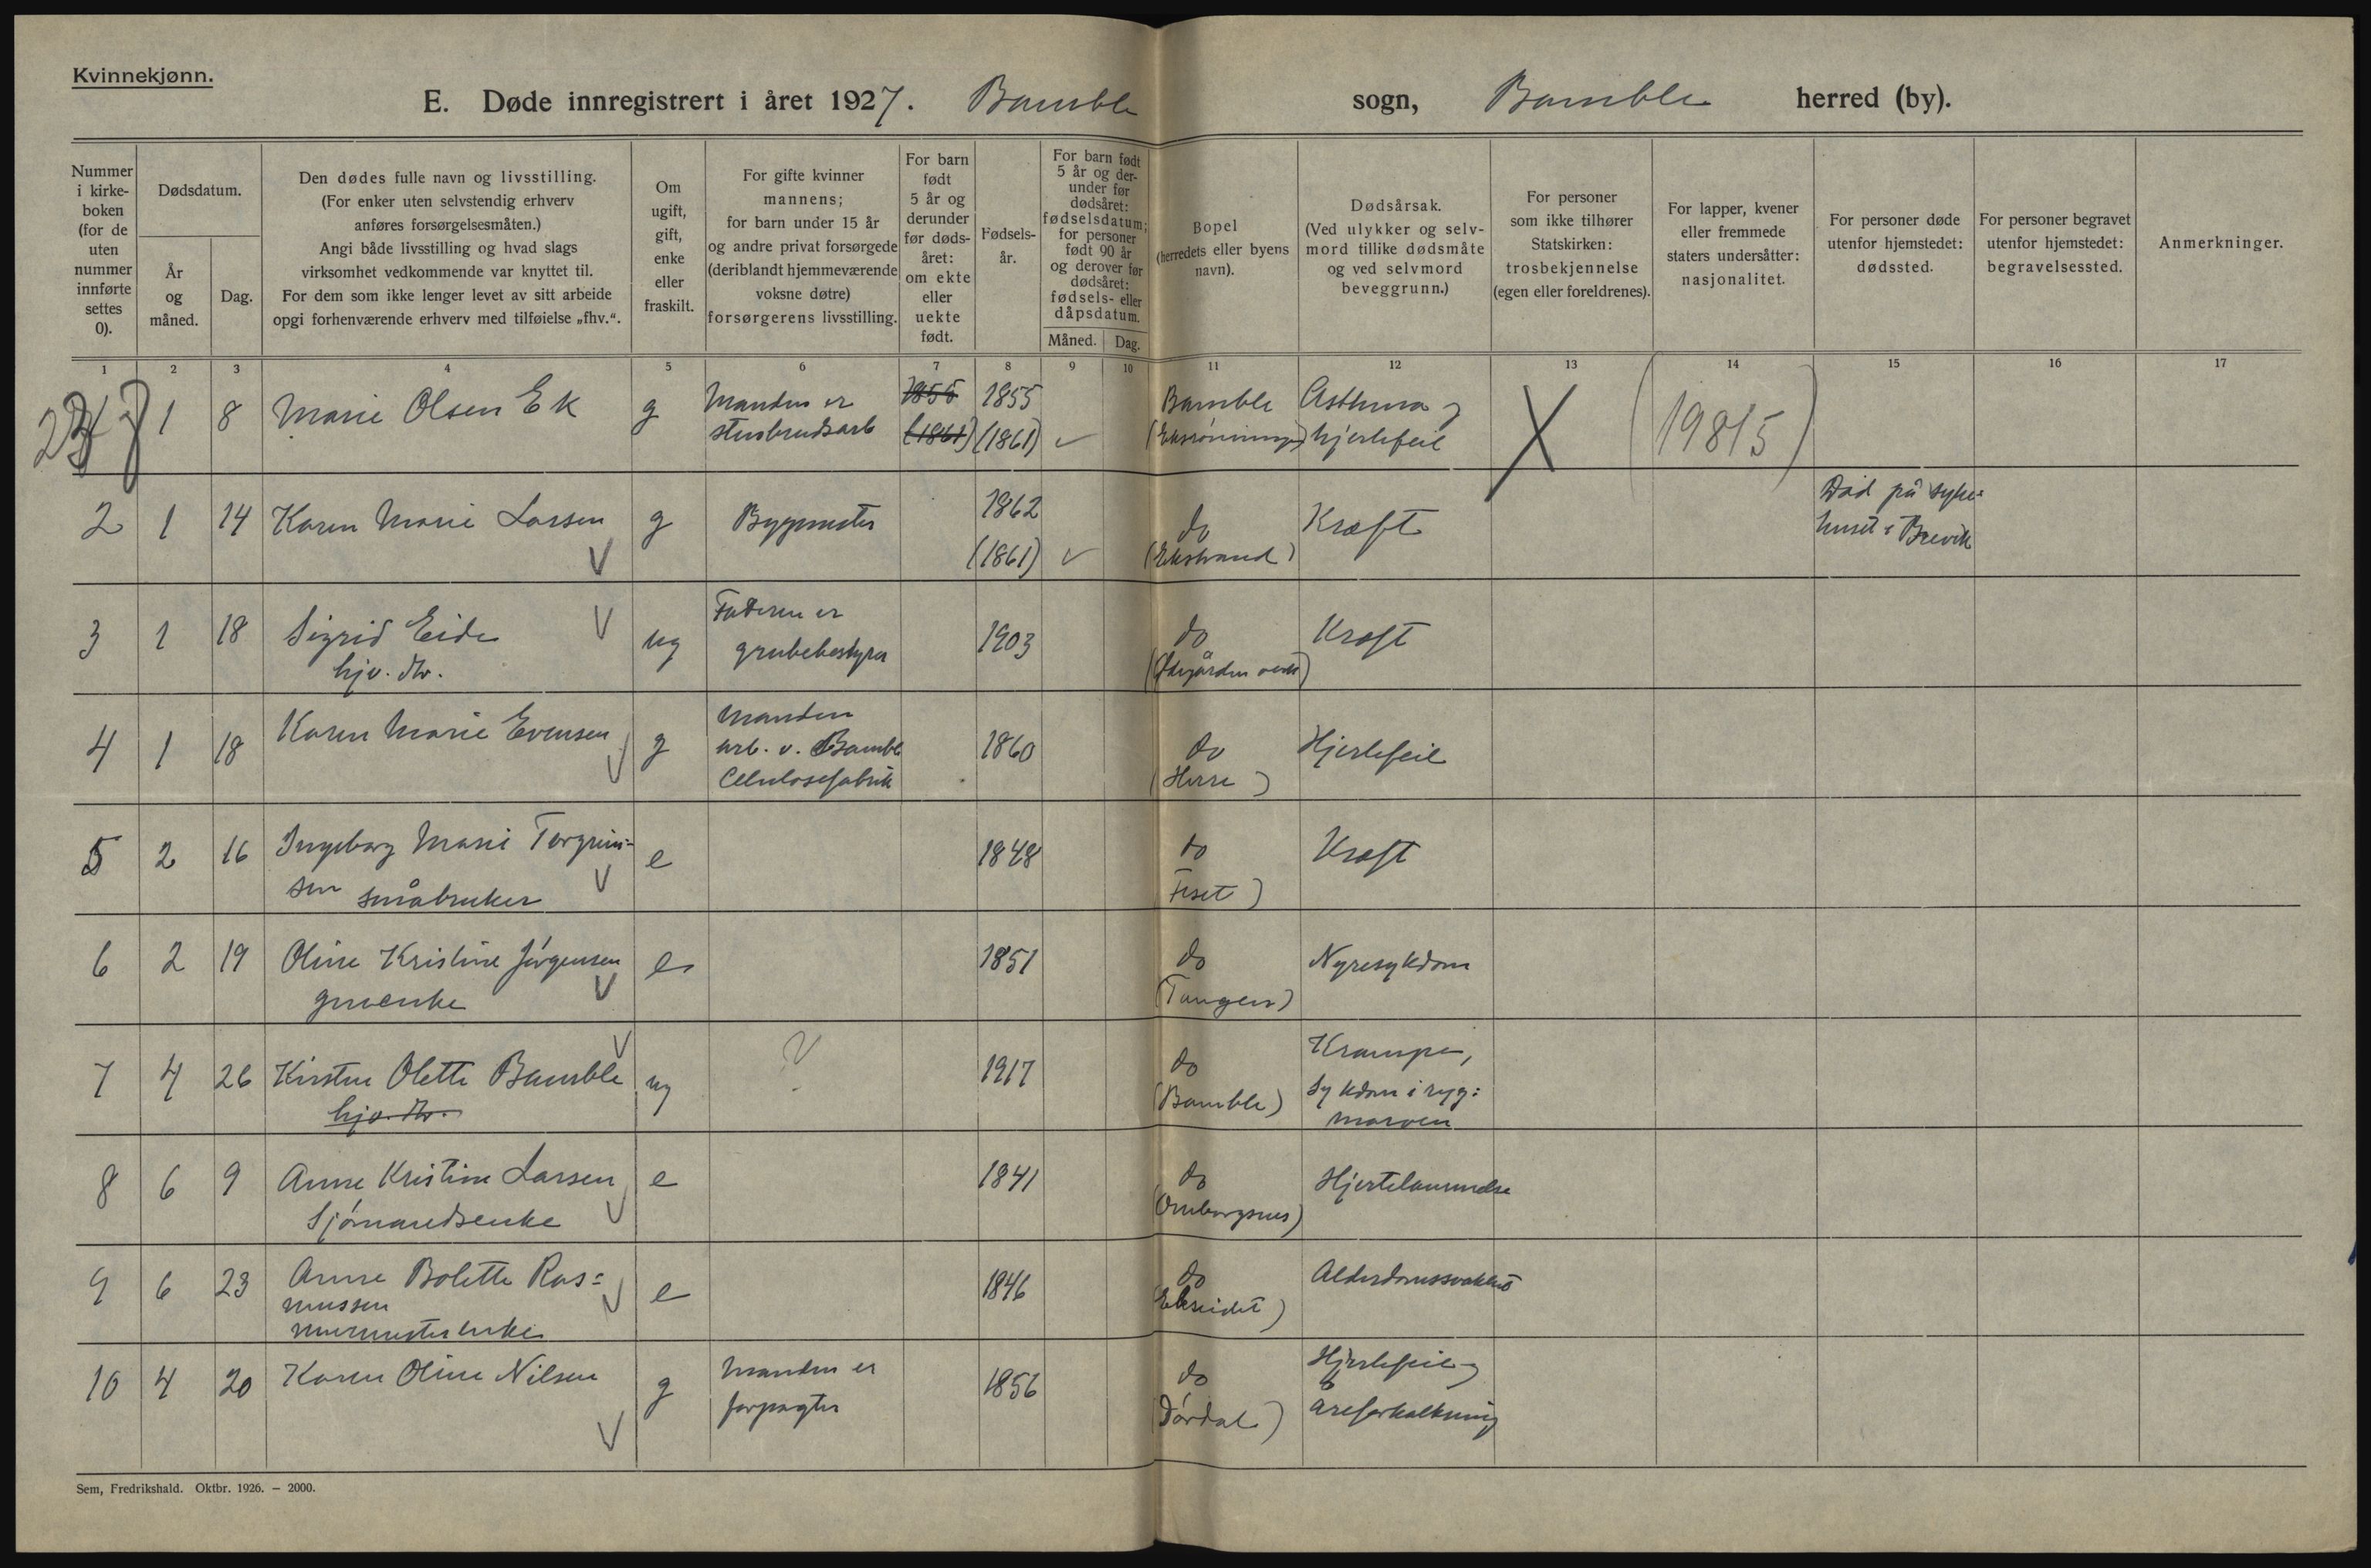 Kvinnekjønn.
E. Døde innregistrert i året 1927. Bamble sogn, Bamble herred (by).
Nummer i kirke-boken (for de uten nummer innførte settes 0).
Dødsdatum.
År og måned.
Dag.
Den dødes fulle navn og livsstilling.
(For enker uten selvstendig erhverv
anføres forsørgelsesmåten.)
Angi både livsstilling og hvad slags
virksomhet vedkommende var knyttet til.
For dem som ikke lenger levet av sitt arbeide
opgi forhenværende erhverv med tilføielse „fhv.“.
Om ugift, gift, enke eller fraskilt.
For gifte kvinner
mannens;
for barn under 15 år
og andre privat forsørgede
(deriblandt hjemmeværende
voksne døtre)
forsørgerens livsstilling.
For barn født 5 år og derunder før døds-året: om ekte eller uekte født.
Fødsels-år.
For barn født 5 år og der-under før dødsåret: fødselsdatum; for personer født 90 år og derover før dødsåret: fødsels- eller dåpsdatum.
Måned. Dag.
Bopel
(herredets eller byens
navn).
Dødsårsak.
(Ved ulykker og selv-
mord tillike dødsmåte
og ved selvmord
beveggrunn.)
For personer
som ikke tilhører
Statskirken:
trosbekjennelse
(egen eller foreldrenes).
For lapper, kvener
eller fremmede
staters undersåtter:
nasjonalitet.
For personer døde
utenfor hjemstedet:
dødssted.
For personer begravet
utenfor hjemstedet:
begravelsessted.
Anmerkninger.
1 2 3 4 5 6 7 8 9 10 11 12 13 14 15 16 17
1 8 Marie Olsen Ek g Manden er 1855 1855 Bamble Asthma
(1861) (1861) hjertefeil (19815)
2 1 14 Karen Marie Larsen g Byggmester 1862 do Kræft Død på syke=
(1861) (Ekstrand) huset i Brevik
3 1 18 Sigrid Eide ug Faderen er 1903 do Kræft
hjv. dtr. grubebestyrer (Ødegården verk)
4 1 18 Karen Marie Evensen g Manden 1860 do Hjertefeil
arb. v. Bamble (Herre)
Cellulosefabrik
5 2 16 Ingeborg Marie Torgrim= e 1848 do Kræft
sen småbruker
6 2 19 Oline Kristine Jörgensen e 1851 do Nyresykdom
(Tangen)
7 4 26 Kirsten Olette Bamble ug ? 1917 do Krampe,
hjv. dtr. (Bamble) sykdom i ryg=
marven
8 6 9 Anne Kristine Larsen e 1841 do Hjertelammelse
Sjömandsenke (Omborgsnes)
9 6 23 Anne Bolette Ras= e 1846 do Alderdomssvakhet
mussen (Ekneidet)
murmesterenke
10 4 20 Karen Oline Nilsen g Manden er 1856 do Hjertefeil
forpagter (Dördal) åreforkalkning
Sem, Fredrikshald. Oktbr. 1926. – 2000.